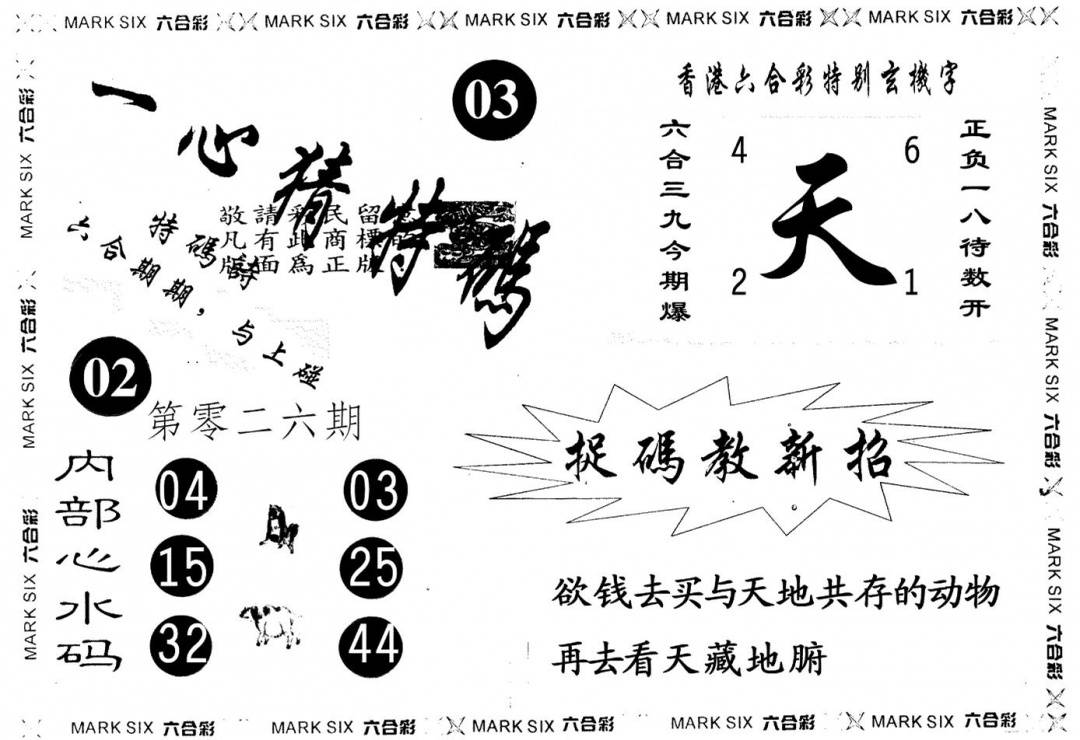 MARK SIX 六合彩 MARK SIX 六合彩 MARK SIX 六合彩 MARK SIX 六合彩 MARK SIX 六合彩
MARK SIX 六合彩
MARK SIX 六合彩
MARK SIX 六合彩
一心猜特碼
03
敬請彩民留意
凡有此商標的
版面為正版
特碼詩
六合期期,与上碰
02
第零二六期
内部心水码
04 03
15 25
32 44
香港六合彩特别玄機字
六合三九今期爆
4 6
天
2 1
正负一八待数开
捉碼教新招
欲钱去买与天地共存的动物
再去看天藏地腑
MARK SIX 六合彩
MARK SIX 六合彩
MARK SIX 六合彩
MARK SIX 六合彩 MARK SIX 六合彩 MARK SIX 六合彩 MARK SIX 六合彩 MARK SIX 六合彩